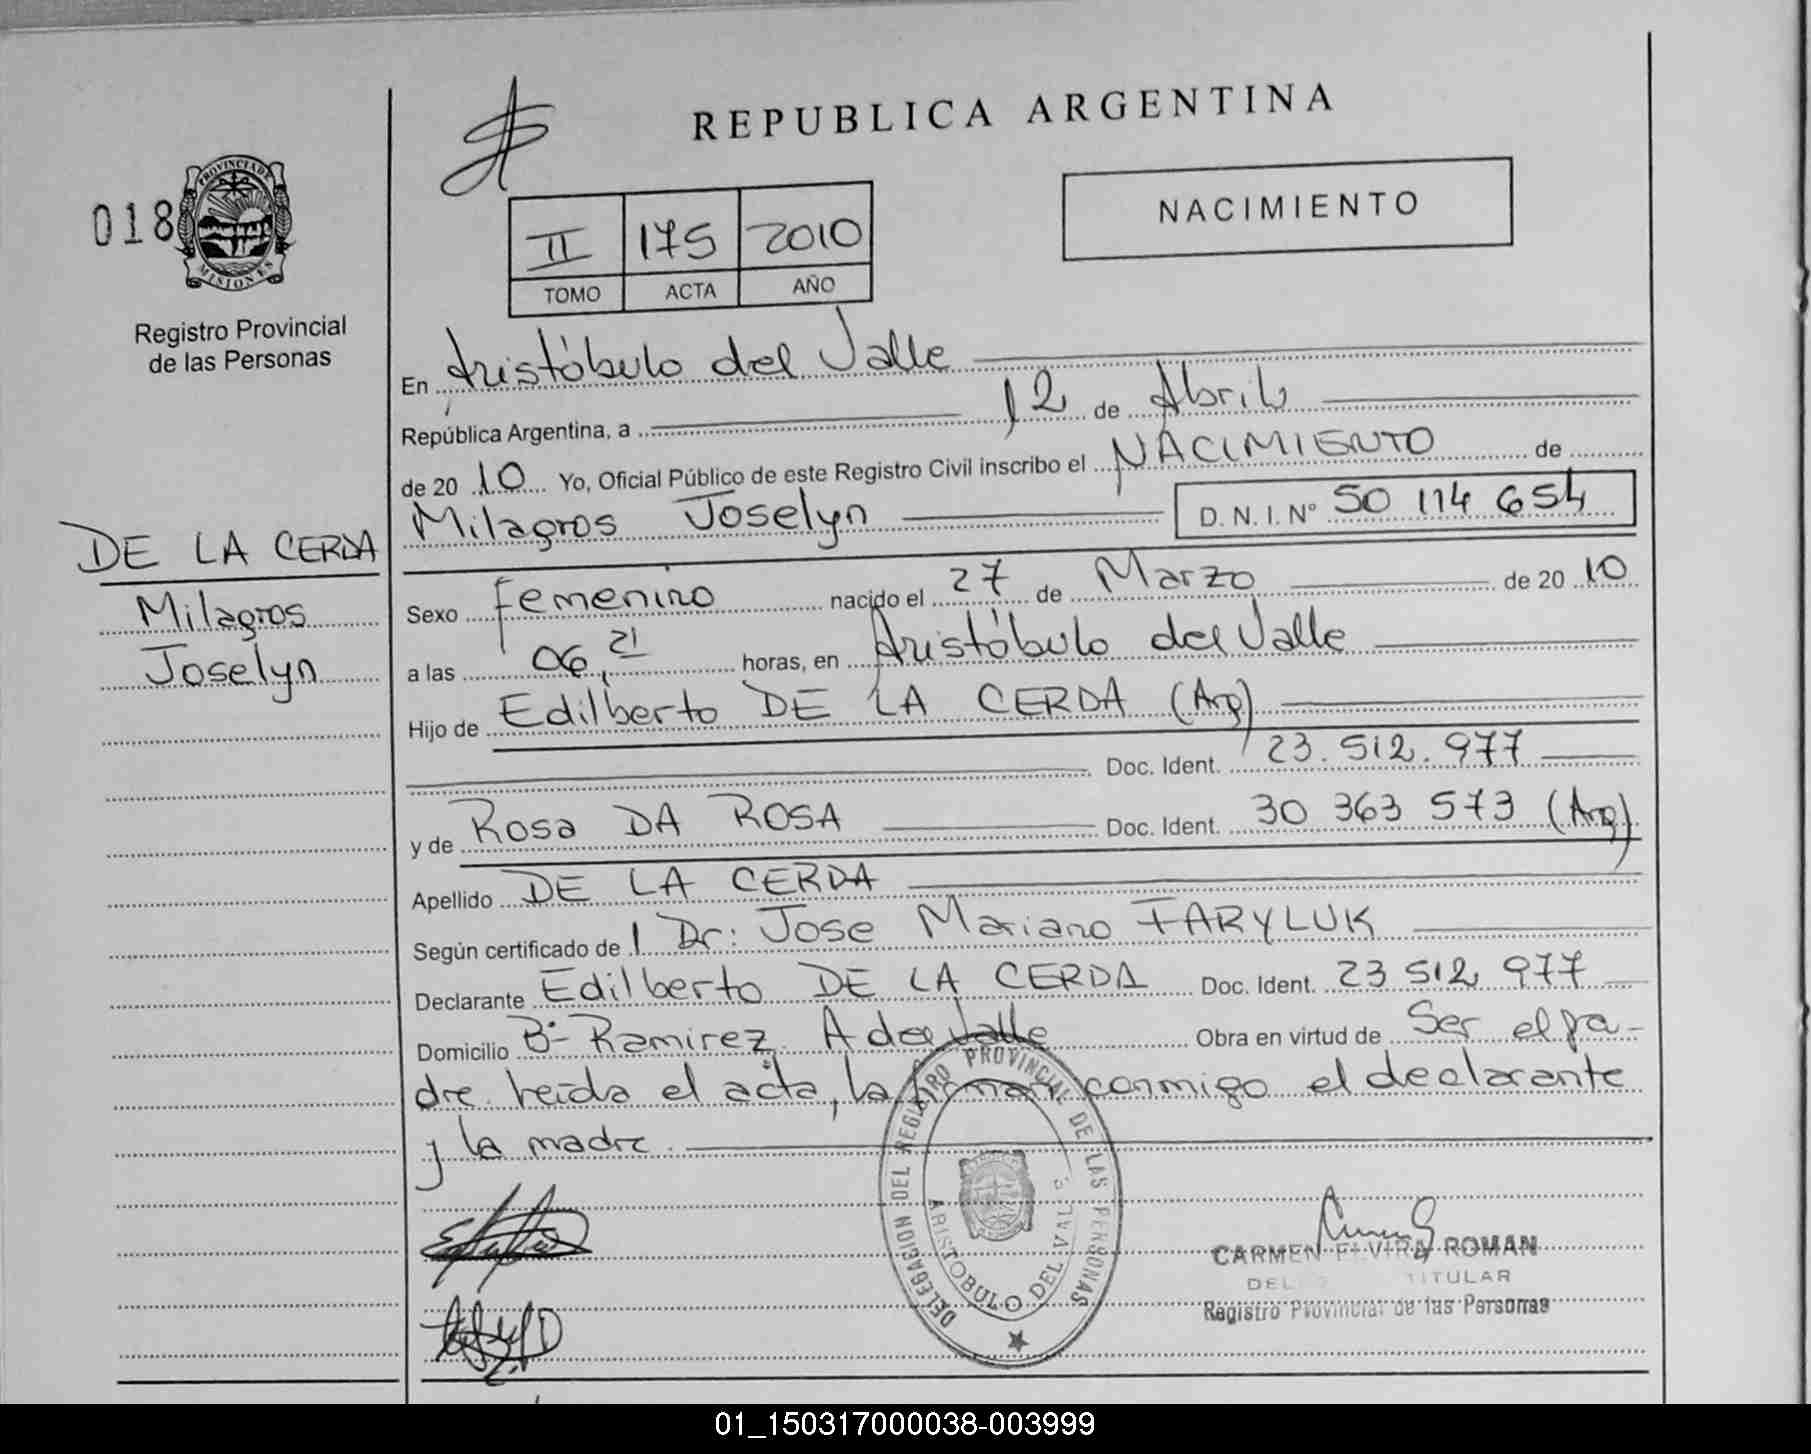 REPUBLICA ARGENTINA
NACIMIENTO
018
PROVINCIA DE
MISIONES
Registro Provincial
de las Personas
II 175 2010
TOMO ACTA AÑO
En Aristóbulo del Valle
República Argentina, a 12 de Abril
de 20 10 Yo, Oficial Público de este Registro Civil inscribo el NACIMIENTO de
Milagros Joselyn D.N.I. Nº 50 114 654
DE LA CERDA
Milagros
Joselyn
Sexo Femenino nacido el 27 de Marzo de 20 10
a las 06,21 horas, en Aristóbulo del Valle
Hijo de Edilberto DE LA CERDA (Arg)
Doc. Ident. 23.512.977
y de Rosa DA ROSA Doc. Ident. 30 363 573 (Arg)
Apellido DE LA CERDA
Según certificado de l Dr: Jose Mariano FARYLUK
Declarante Edilberto DE LA CERDA Doc. Ident. 23 512 977
Domicilio Bº Ramirez A del Valle Obra en virtud de Ser el pa-
dre. Leída el acta, la firman conmigo el declarante
y la madre.
DELEGACION DEL REGISTRO PROVINCIAL DE LAS PERSONAS
ARISTOBULO DEL VALLE
CARMEN ELVIRA ROMAN
TITULAR
Registro Provincial de las Personas
01_150317000038-003999